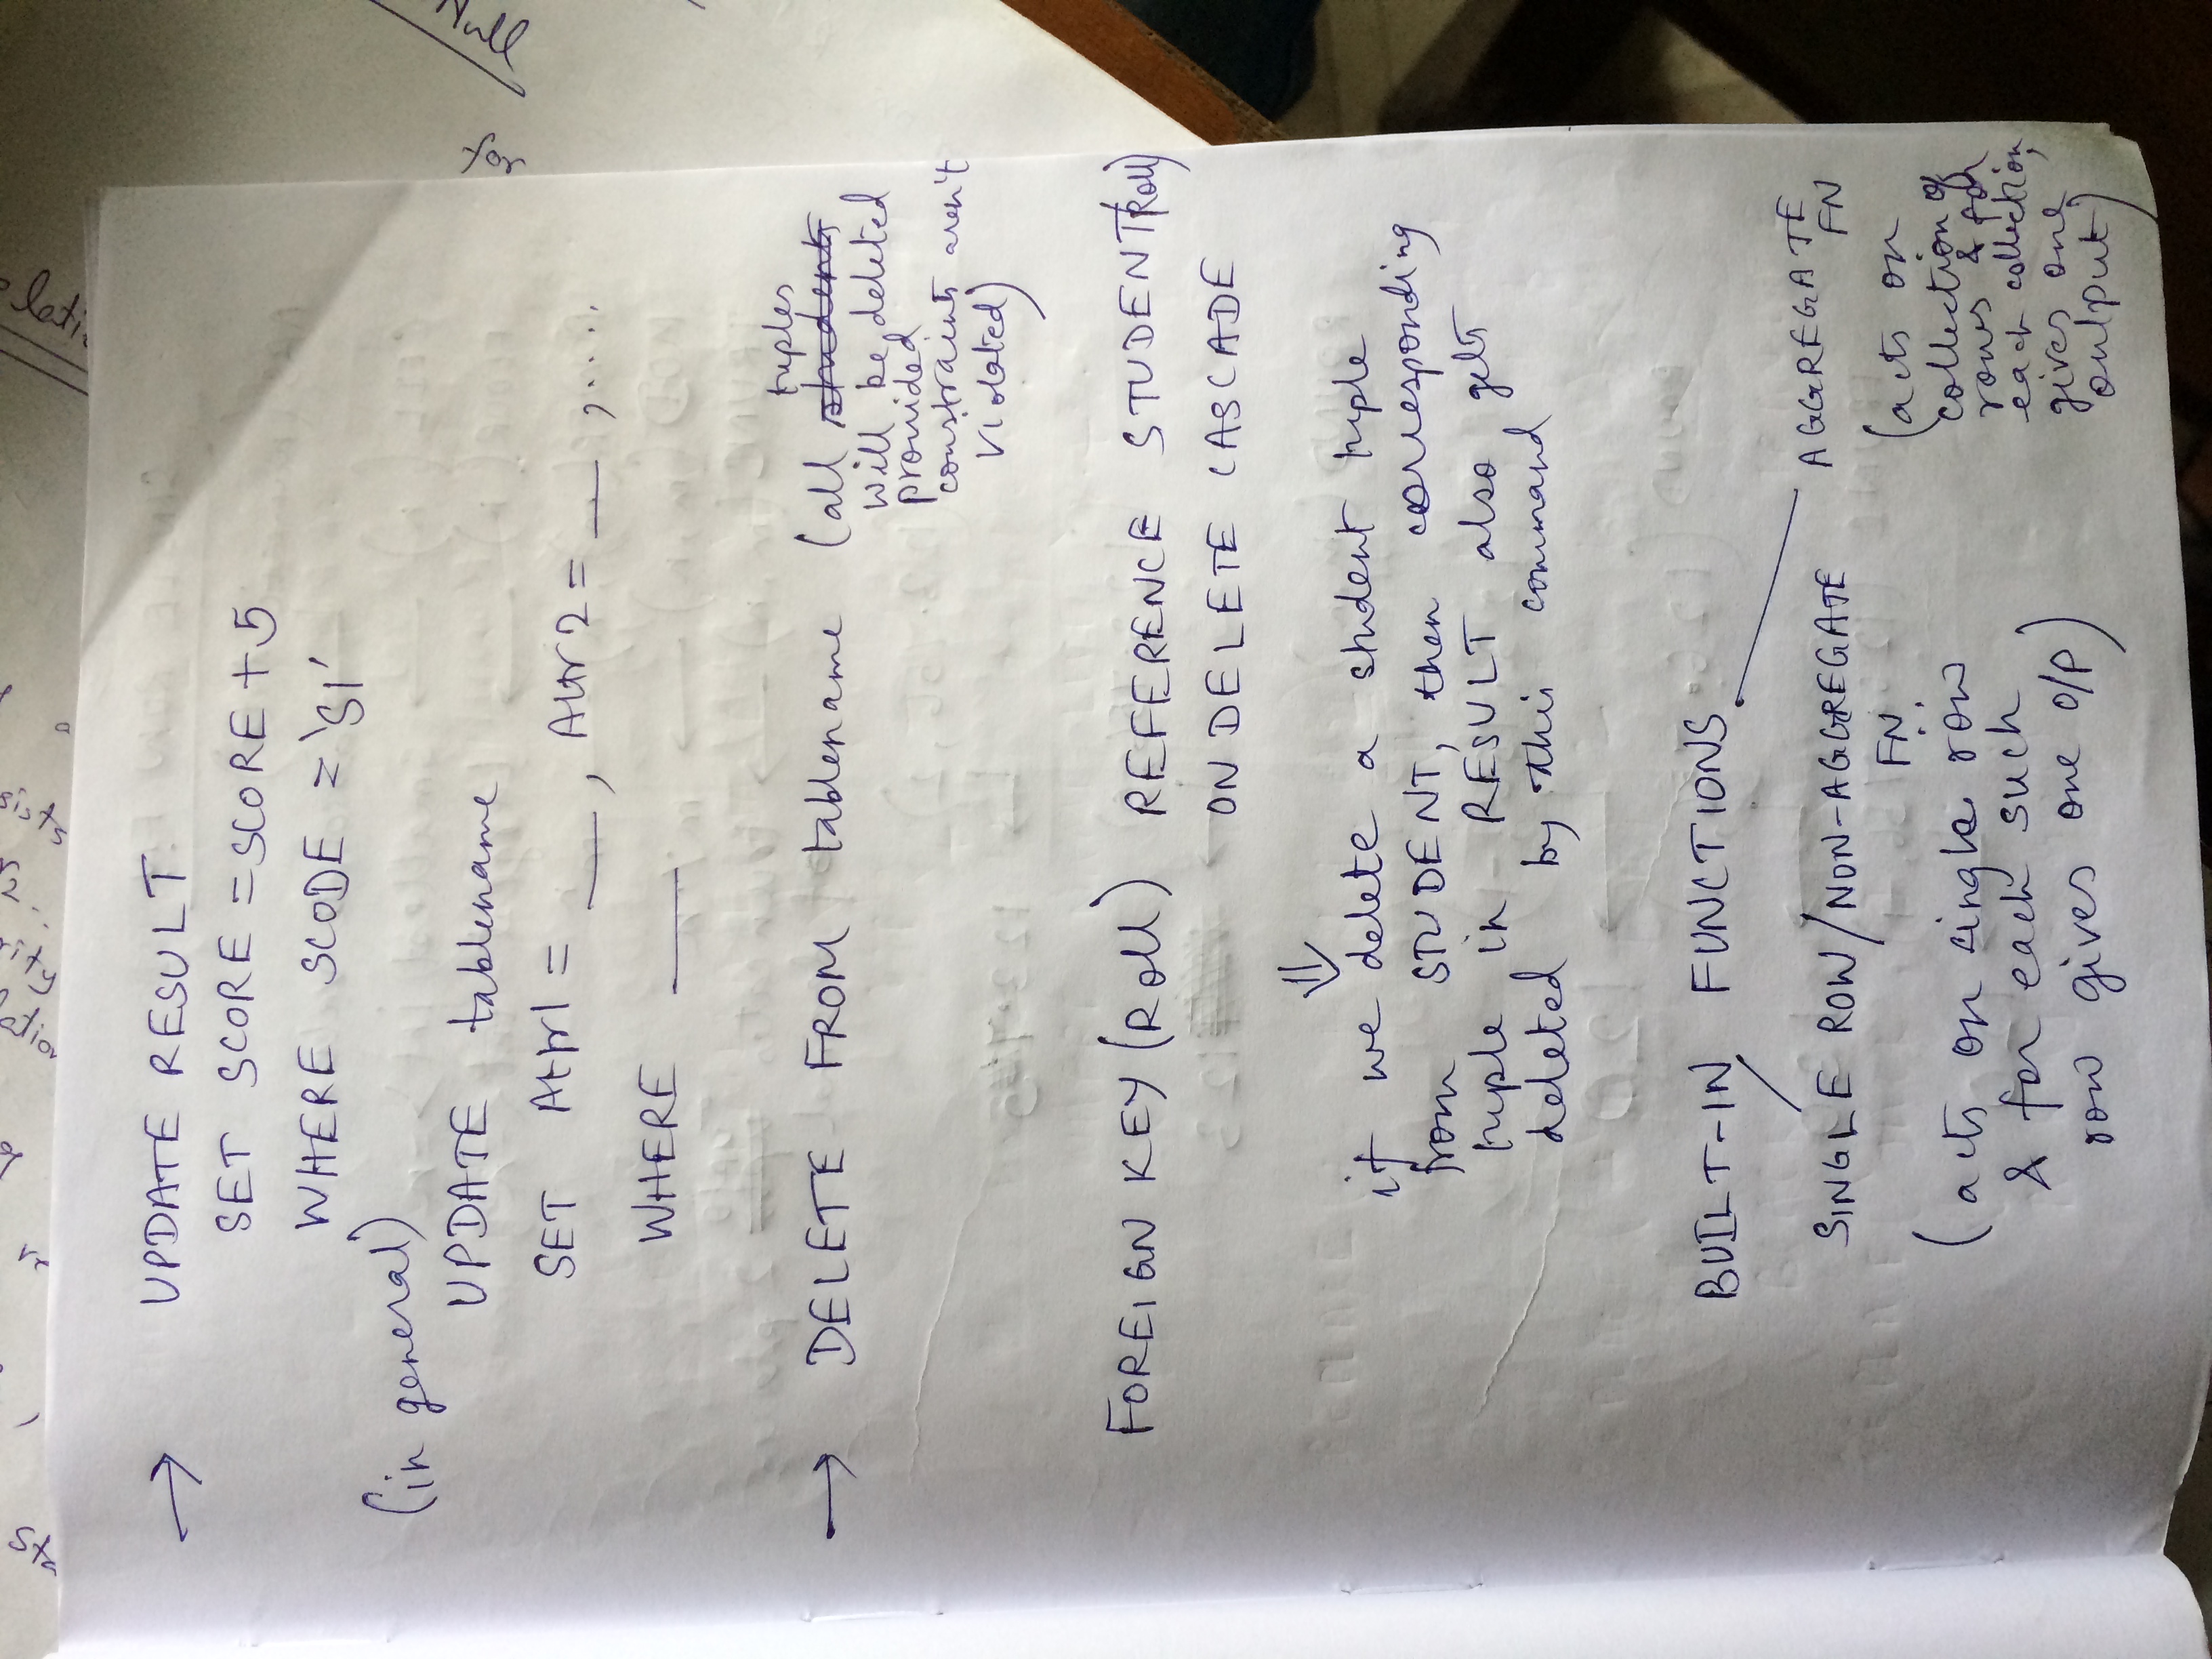 → UPDATE RESULT
SET SCORE = SCORE + 5
WHERE SCODE = 'S1'
(in general)
UPDATE tablename
SET Attr1 = ___, Attr2 = ___, .....
WHERE ____
→ DELETE FROM tablename (all students tuples
will be deleted
provided
constraints aren't
violated)
FOREIGN KEY (Roll) REFERENCE STUDENT(Roll)
ON DELETE CASCADE
⇓
if we delete a student tuple
from STUDENT, then corresponding
tuple in RESULT also gets
deleted by this command
BUILT-IN FUNCTIONS
SINGLE ROW/NON-AGGREGATE
FN
(acts on single row
& for each such
row gives one O/P)
AGGREGATE
FN
(acts on
collection of
rows & for
each collection,
gives one
output)
Null
for